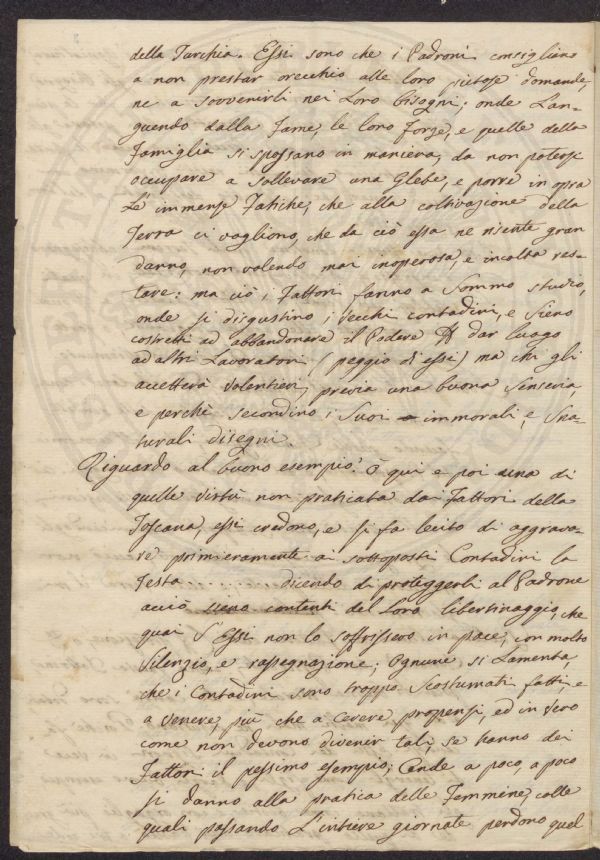 della Turchia. Essi sono che i Padroni consigliano
a non prestar orecchio alle loro pietose domande,
ne a sovvenirli nei Loro bisogni; onde Lan-
guendo dalla Fame, le loro Forze, e quelle della
Famiglia si spossano in maniera, da non potersi
occupare a sollevare una Glebe, e porre in opra
Le immense Fatiche, che alla coltivazione della
Terra ci vogliono, che da ciò essa ne risente gran
danno, non volendo mai inoperosa, e incolta res-
tare: ma ciò i Fattori fanno a Sommo studio,
onde si disgustino i vecchi contadini, e Sieno
costretti ad abbandonare il Podere dar luogo
ad altri Lavoratori (peggio di essi) ma chi gli
accetterà Volentieri, previa una buona Senseria,
e perchè secondino i Suoi immorali, e Sna-
turali disegni.
Riguardo al buono esempio! O qui e poi una di
quelle virtù non praticata dai Fattori della
Toscana, essi credono, e si fa lecito di aggrava-
re primieramente ai sottoposti Contadini la
Testa ......... dicendo di proteggerli al Padrone
acciò sieno contenti del Loro libertinaggio, che
guai S'Essi non lo soffrissero in pace, con molto
Silenzio, e rassegnazione; Ognuno si Lamenta,
che i Contadini sono troppo Scostumati fatti, e
a Venere, più che a Cerere propensi, ed in vero
come non devono divenir tali, se hanno dei
Fattori il pessimo esempio; Onde a poco, a poco
si danno alla pratica delle Femmine, colle
quali passando L'intiere giornate perdono quel